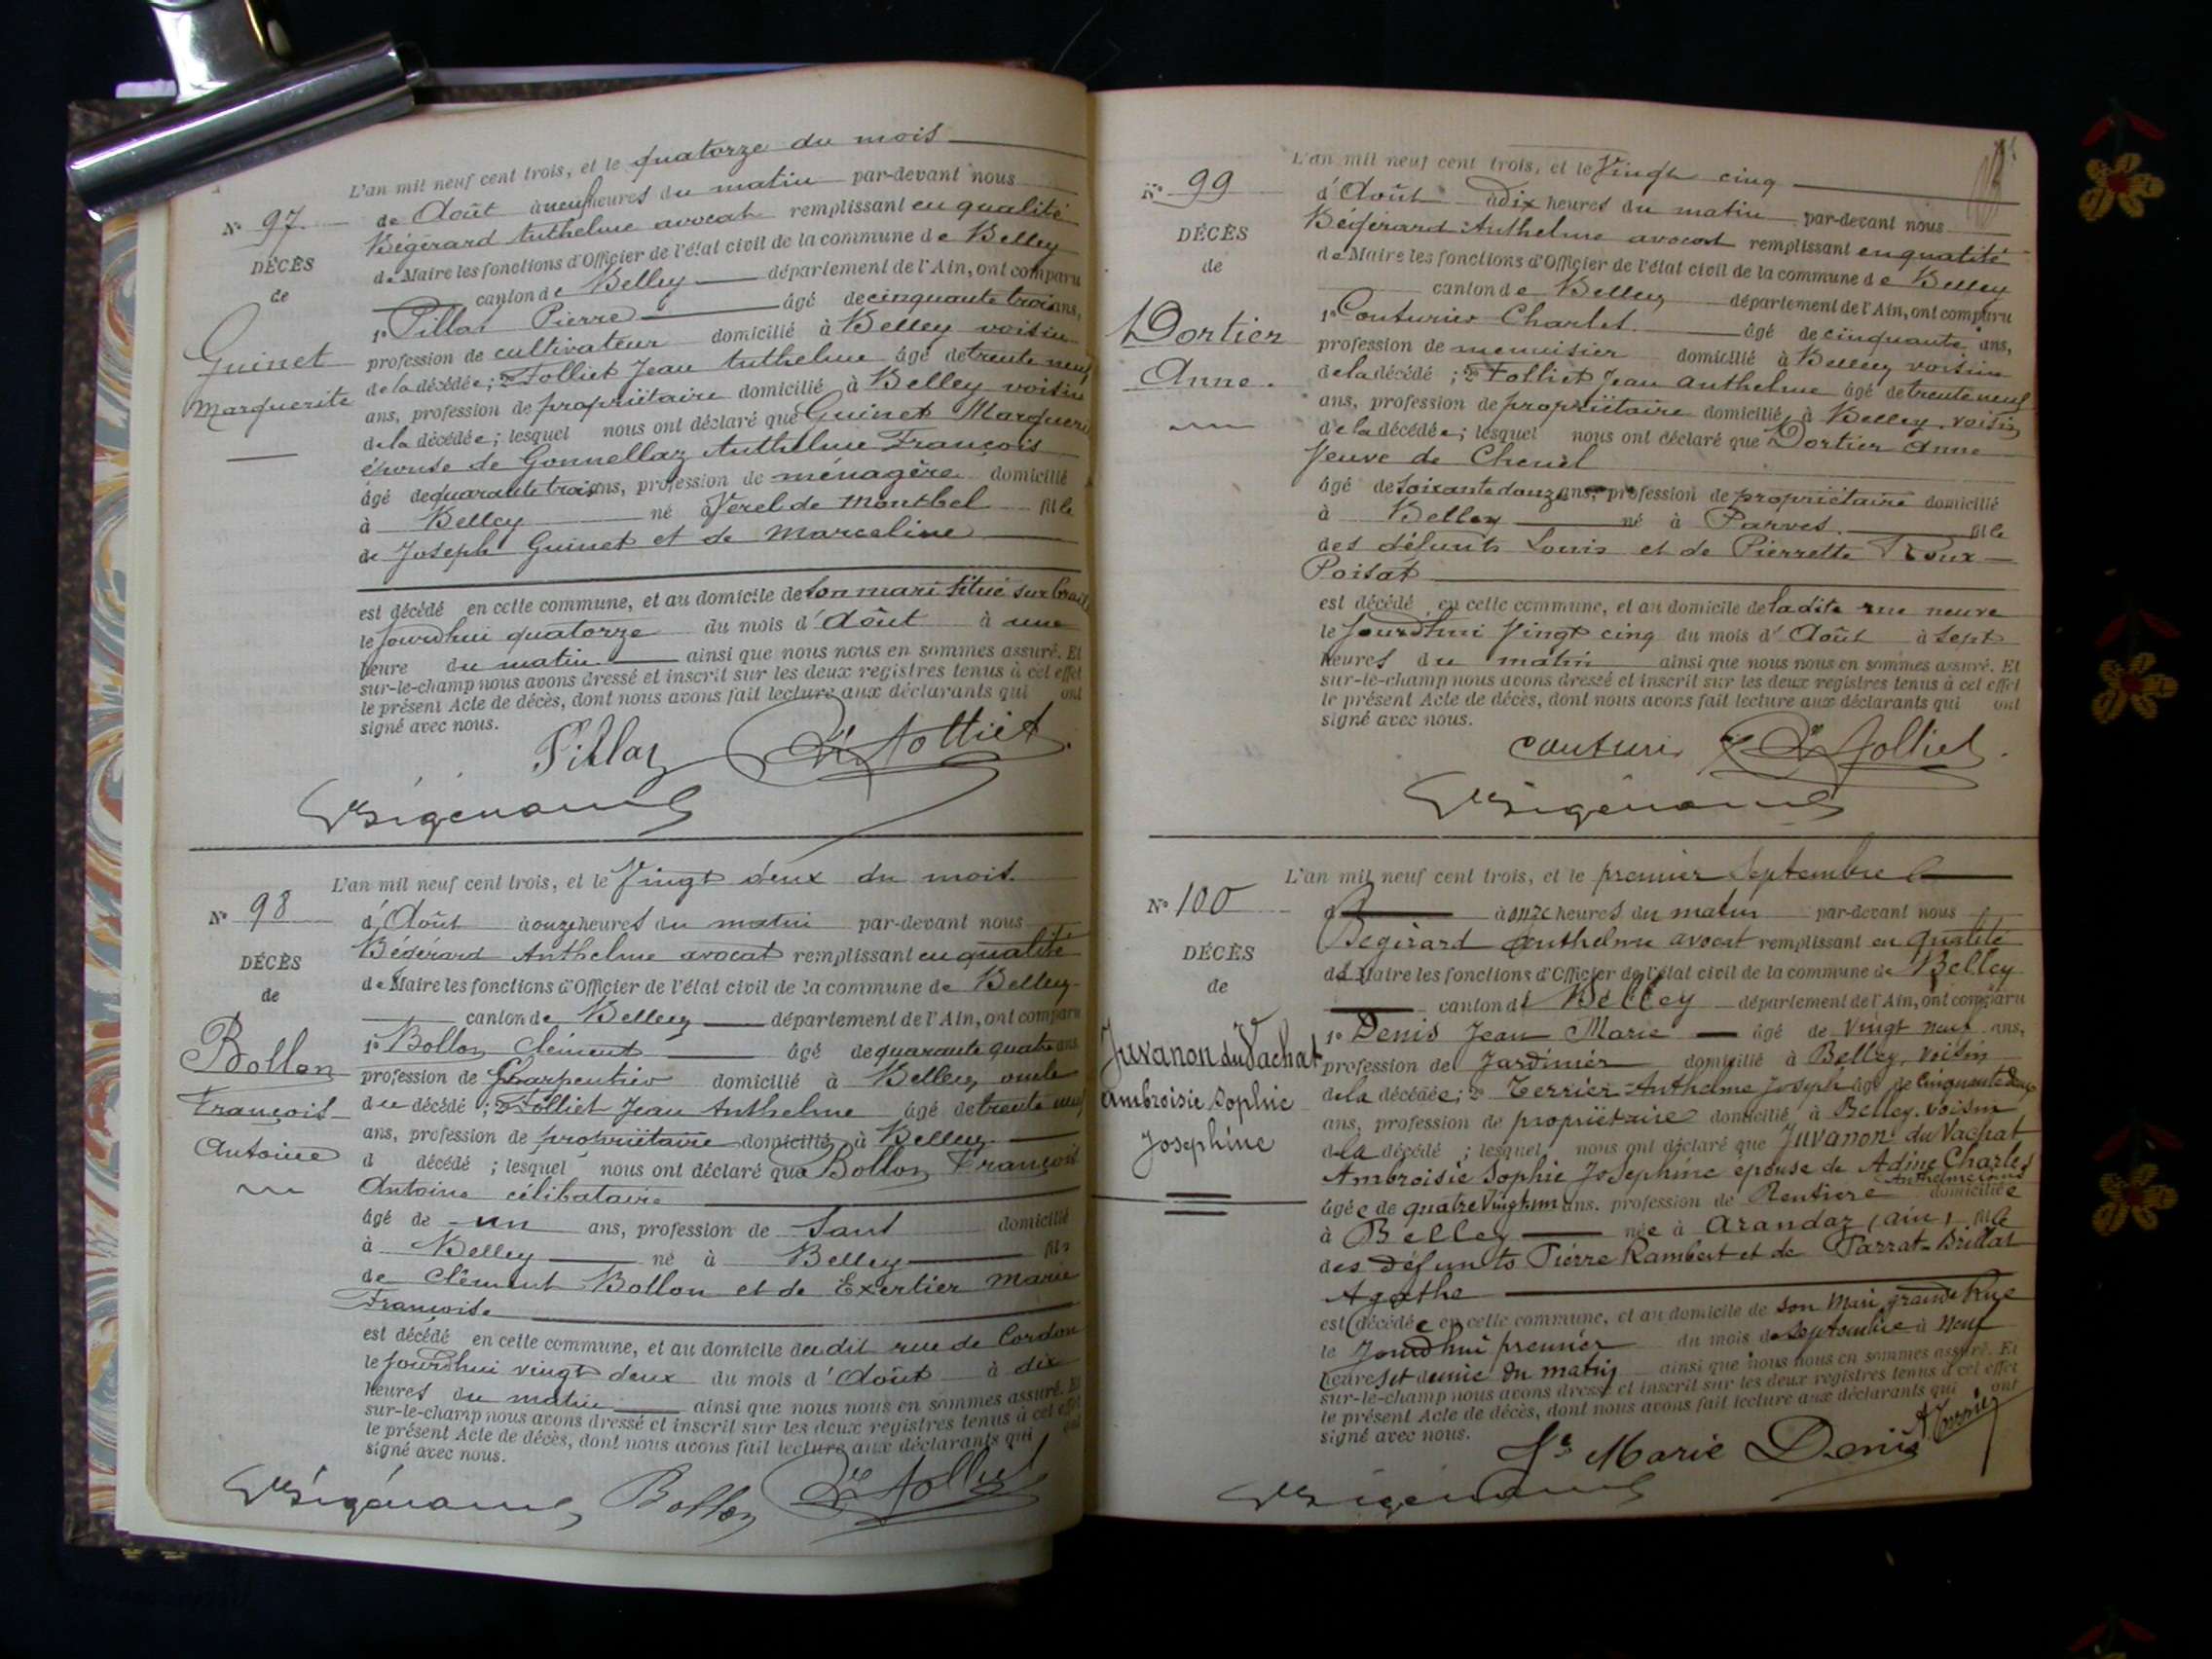 L'an mil neuf cent trois, et le quatorze du mois
N° 97
de Août à neuf heures du matin par-devant nous
Bégérard Anthelme avocat remplissant en qualité
DÉCÈS
de Maire les fonctions d'Officier de l'état civil de la commune de Belley
de
canton de Belley département de l'Ain, ont comparu
1° Pillaz Pierre âgé de cinquante trois ans,
Guinet
profession de cultivateur domicilié à Belley voisin
Marguerite
de la décédée; 2° Folliet Jean Anthelme âgé de trente neuf
ans, profession de propriétaire domicilié à Belley voisin
de la décédée; lesquel nous ont déclaré que Guinet Marguerite
épouse de Gonnellaz Anthelme François
âgé de quarante trois ans, profession de ménagère domicilié
à Belley né à Verel de Montbel fille
de Joseph Guinet et de Marceline
est décédé en cette commune, et au domicile de son mari situé sur
le jourdhui quatorze du mois d'Août à une
heure du matin ainsi que nous nous en sommes assuré. Et
sur-le-champ nous avons dressé et inscrit sur les deux registres tenus à cet effet
le présent Acte de décès, dont nous avons fait lecture aux déclarants qui ont
signé avec nous.
Pillaz Folliet
Bégérard
L'an mil neuf cent trois, et le Vingt deux du mois
N° 98
d'Août à onze heures du matin par-devant nous
Bégérard Anthelme avocat remplissant en qualité
DÉCÈS
de Maire les fonctions d'Officier de l'état civil de la commune de Belley
de
canton de Belley département de l'Ain, ont comparu
Bollon
1° Bollon Clément âgé de quarante quatre ans
profession de Charpentier domicilié à Belley oncle
François
du décédé; 2° Folliet Jean Anthelme âgé de trente neuf
ans, profession de propriétaire domicilié à Belley
Antoine
d décédé; lesquel nous ont déclaré que Bollon François
Antoine célibataire
âgé de un ans, profession de Sans domicilié
à Belley né à Belley fils
de Clément Bollon et de Exertier Marie
Françoise
est décédé en cette commune, et au domicile dudit rue de Cordon
le jourdhui vingt deux du mois d'Août à dix
heures du matin ainsi que nous nous en sommes assuré. Et
sur-le-champ nous avons dressé et inscrit sur les deux registres tenus à cet effet
le présent Acte de décès, dont nous avons fait lecture aux déclarants qui ont
signé avec nous.
Bégérard Bollon Folliet
L'an mil neuf cent trois, et le Vingt cinq
N° 99
d'Août à dix heures du matin par-devant nous
Bégérard Anthelme avocat remplissant en qualité
DÉCÈS
de Maire les fonctions d'Officier de l'état civil de la commune de Belley
de
canton de Belley département de l'Ain, ont comparu
Dortier
1° Couturier Charles âgé de cinquante ans,
profession de menuisier domicilié à Belley voisin
Anne.
de la décédé; 2° Folliet Jean Anthelme âgé de trente neuf
ans, profession de propriétaire domicilié à Belley, voisin
de la décédée; lesquel nous ont déclaré que Dortier Anne
Veuve de Chenel
âgé de soixante douze ans, profession de propriétaire domicilié
à Belley né à Parves fille
des défunts Louis et de Pierrette Roux
Poisat
est décédé en cette commune, et au domicile de ladite rue neuve
le jourdhui Vingt cinq du mois d'Août à sept
heures du matin ainsi que nous nous en sommes assuré. Et
sur-le-champ nous avons dressé et inscrit sur les deux registres tenus à cet effet
le présent Acte de décès, dont nous avons fait lecture aux déclarants qui ont
signé avec nous.
couturier Folliet
Bégérard
L'an mil neuf cent trois, et le premier Septembre
N° 100
à onze heures du matin par-devant nous
Bégérard Anthelme avocat remplissant en qualité
DÉCÈS
de Maire les fonctions d'Officier de l'état civil de la commune de Belley
de
canton de Belley département de l'Ain, ont comparu
1° Denis Jean Marie âgé de vingt neuf ans,
Juvanon du Vachat
profession de Jardinier domicilié à Belley, voisin
Ambroisie Sophie
de la décédée; 2° Terrier Anthelme Joseph âgé de cinquante deux
ans, profession de propriétaire domicilié à Belley, voisin
Josephine
de la décédé; lesquel nous ont déclaré que Juvanon du Vachat
Ambroisie Sophie Josephine epouse de Adine Charles
Anthelme
âgée de quatre Vingt un ans, profession de Rentière domiciliée
à Belley née à Arandaz (ain) fille
des défunts Pierre Rambert et de Parrat-Brillat
Agathe
est décédée en cette commune, et au domicile de son Mari grande Rue
le Jourdhui premier du mois de septembre à neuf
heures et demie du matin ainsi que nous nous en sommes assuré. Et
sur-le-champ nous avons dressé et inscrit sur les deux registres tenus à cet effet
le présent Acte de décès, dont nous avons fait lecture aux déclarants qui ont
signé avec nous.
Jn Marie Denis A. Terrier
Bégérard